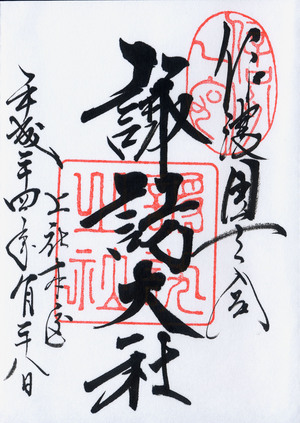 信濃国一之宮
諏訪大社
上社本宮
平成二十四年八月二十八日